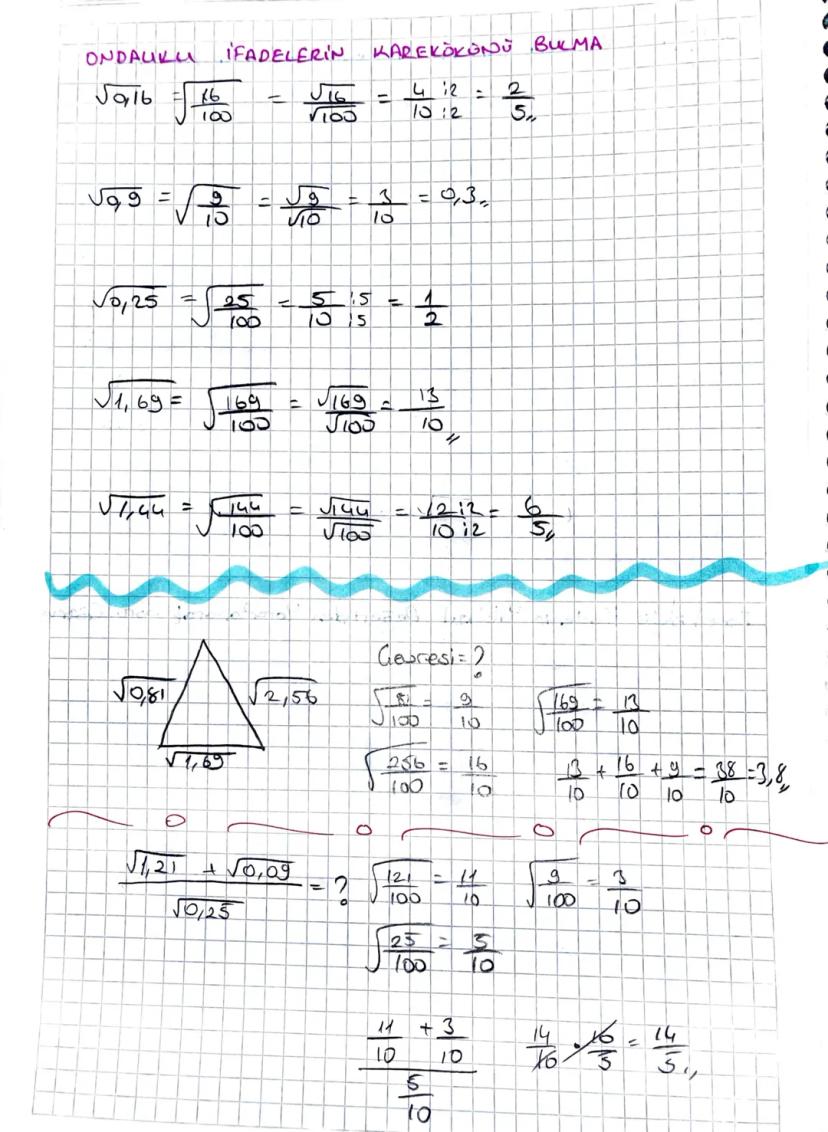 ONDALIKLI İFADELERİN KAREKÖKÜNÜ BULMA
√0,16 = √(16/100) = √16/√100 = 4/10 :2 :2 = 2/5,,
√0,9 = √(9/10) = √9/√10 = 3/10 = 0,3,,
√0,25 = √(25/100) = 5/10 :5 :5 = 1/2
√1,69 = √(169/100) = √169/√100 = 13/10,,
√1,44 = √(144/100) = √144/√100 = 12/10 :2 :2 = 6/5,,
√0,81 √2,56
√1,69
Çevresi = ?
√(81/100) = 9/10 √(169/100) = 13/10
√(256/100) = 16/10 13/10 + 16/10 + 9/10 = 38/10 = 3,8,,
(√1,21 + √0,09)/√0,25 = ? √(121/100) = 11/10 √(9/100) = 3/10
√(25/100) = 5/10
(11/10 + 3/10)/(5/10) 14/10 · 10/5 = 14/5,,